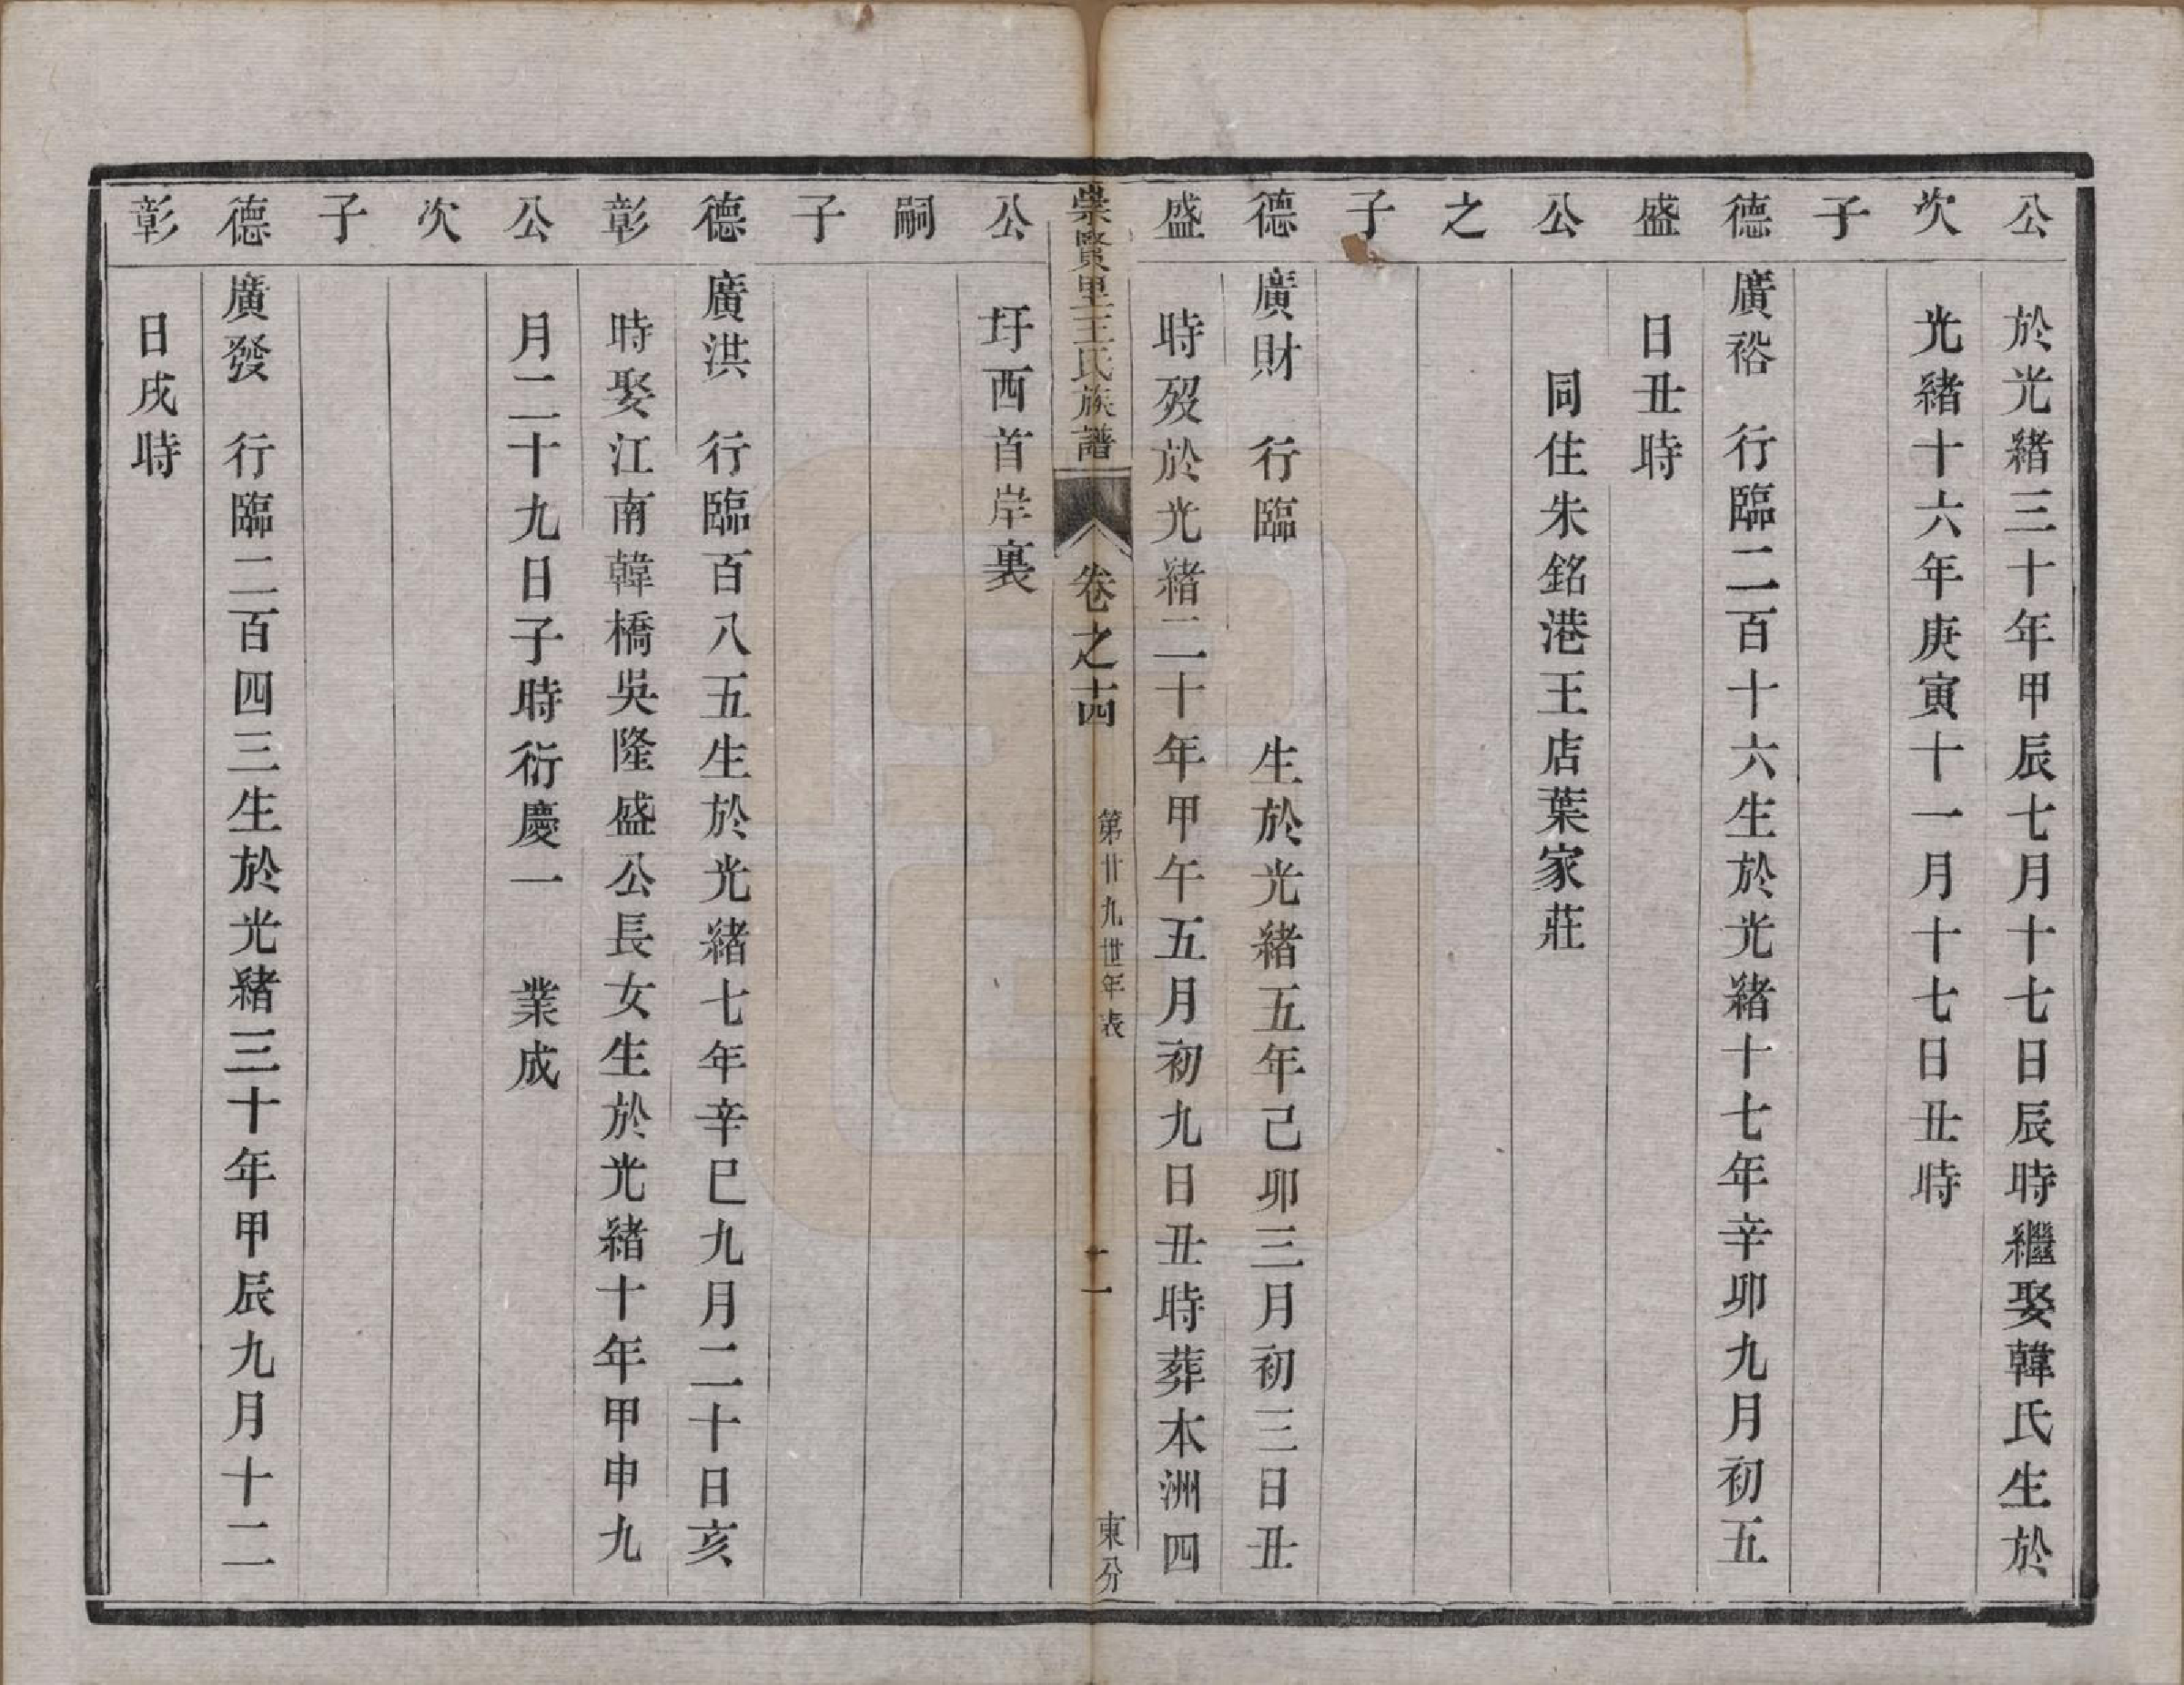 公　於光緒三十年甲辰七月十七日辰時繼娶韓氏生於
次　光緒十六年庚寅十一月十七日丑時
子
德　廣裕　行臨二百十六生於光緒十七年辛卯九月初五
盛　日丑時
公　同住朱銘港王店葉家莊
之
子
德　廣財　行臨　生於光緒五年己卯三月初三日丑
盛　時歿於光緒二十年甲午五月初九日丑時葬本洲四
崇賢里王氏族譜　卷之十四　第廿九世年表　十一　東分
公　圩西首岸裏
嗣
子
德　廣洪　行臨百八五生於光緒七年辛巳九月二十日亥
彰　時娶江南韓橋吳隆盛公長女生於光緒十年甲申九
公　月二十九日子時衍慶一　業成
次
子
德　廣發　行臨二百四三生於光緒三十年甲辰九月十二
彰　日戌時